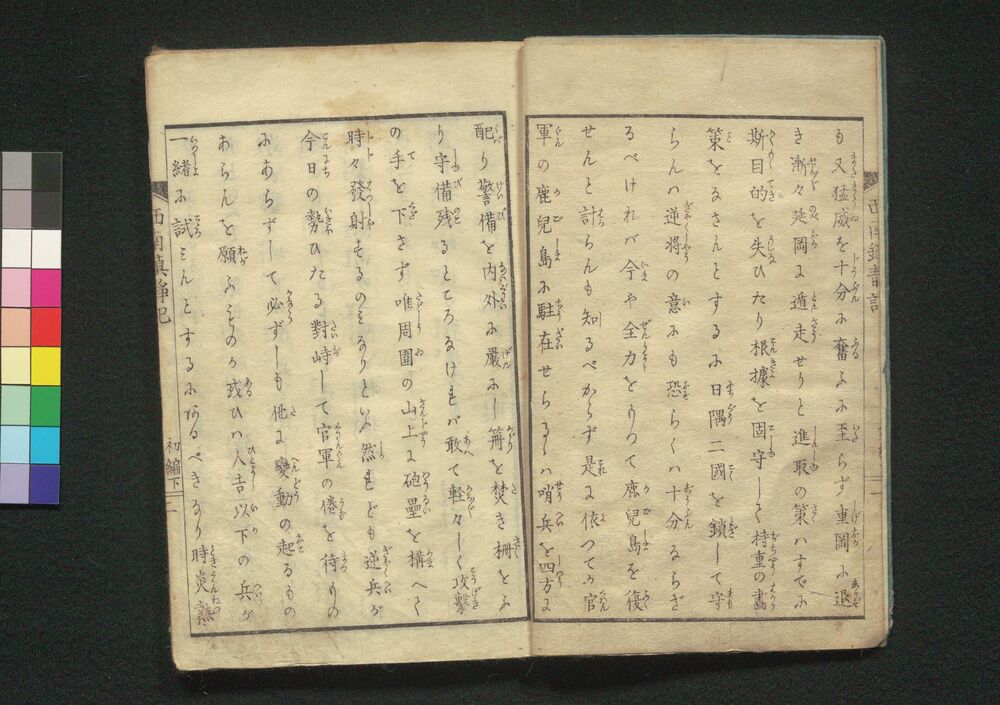 も又猛威を十分に奮ふに至らず重岡に退
き漸々延岡に遁走せりと進取の策ハすでに
斯目的を失ひたり根據を固守して持重の畫
策をなさんとするに日隅二國を鎖して守
らんハ逆将の意にも恐らくハ十分ならざ
るべけれバ今や全力をもつて鹿児島を復
せんと計らんも知るべからず是に依つてか官
軍の鹿児島に駐在せらるゝハ哨兵を四方に
配り警備を内外に嚴にし篝を焚き柵をふ
り守備残るところなけれバ敢て軽々しく攻撃
の手を下さず唯周圍の山上に砲壘を構へて
時々發射するのみなりといふ然れども逆兵が
今日の勢ひたる對峙して官軍の倦を待もの
にあらずして必ずしも他に變動の起るもの
あらんを願ふものか或ひハ人吉以下の兵が
一緒に試みんとするにあるべきなり時炎熱
西南鎮静記
初編下
二